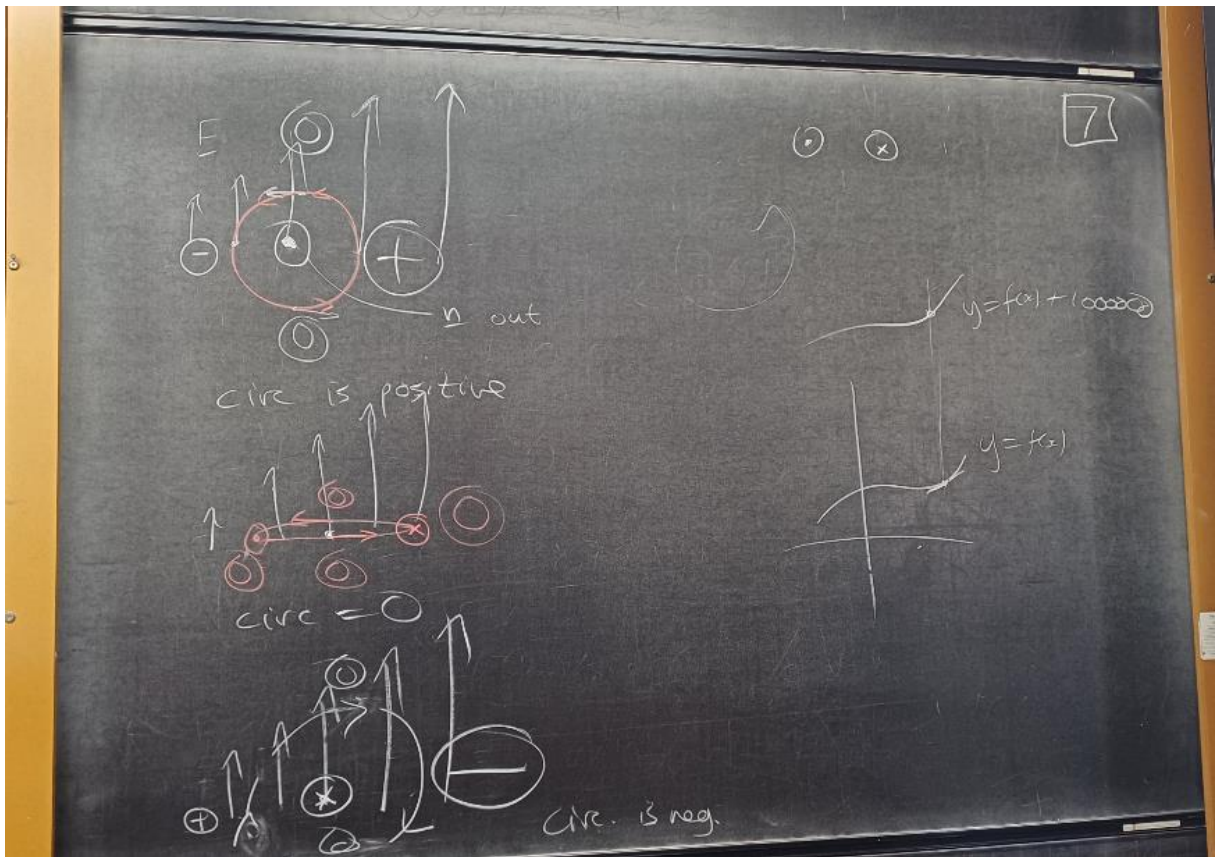 7
E
n out
circ is positive
circ = 0
circ. is neg.
y=f(x)+1000000
y=f(x)